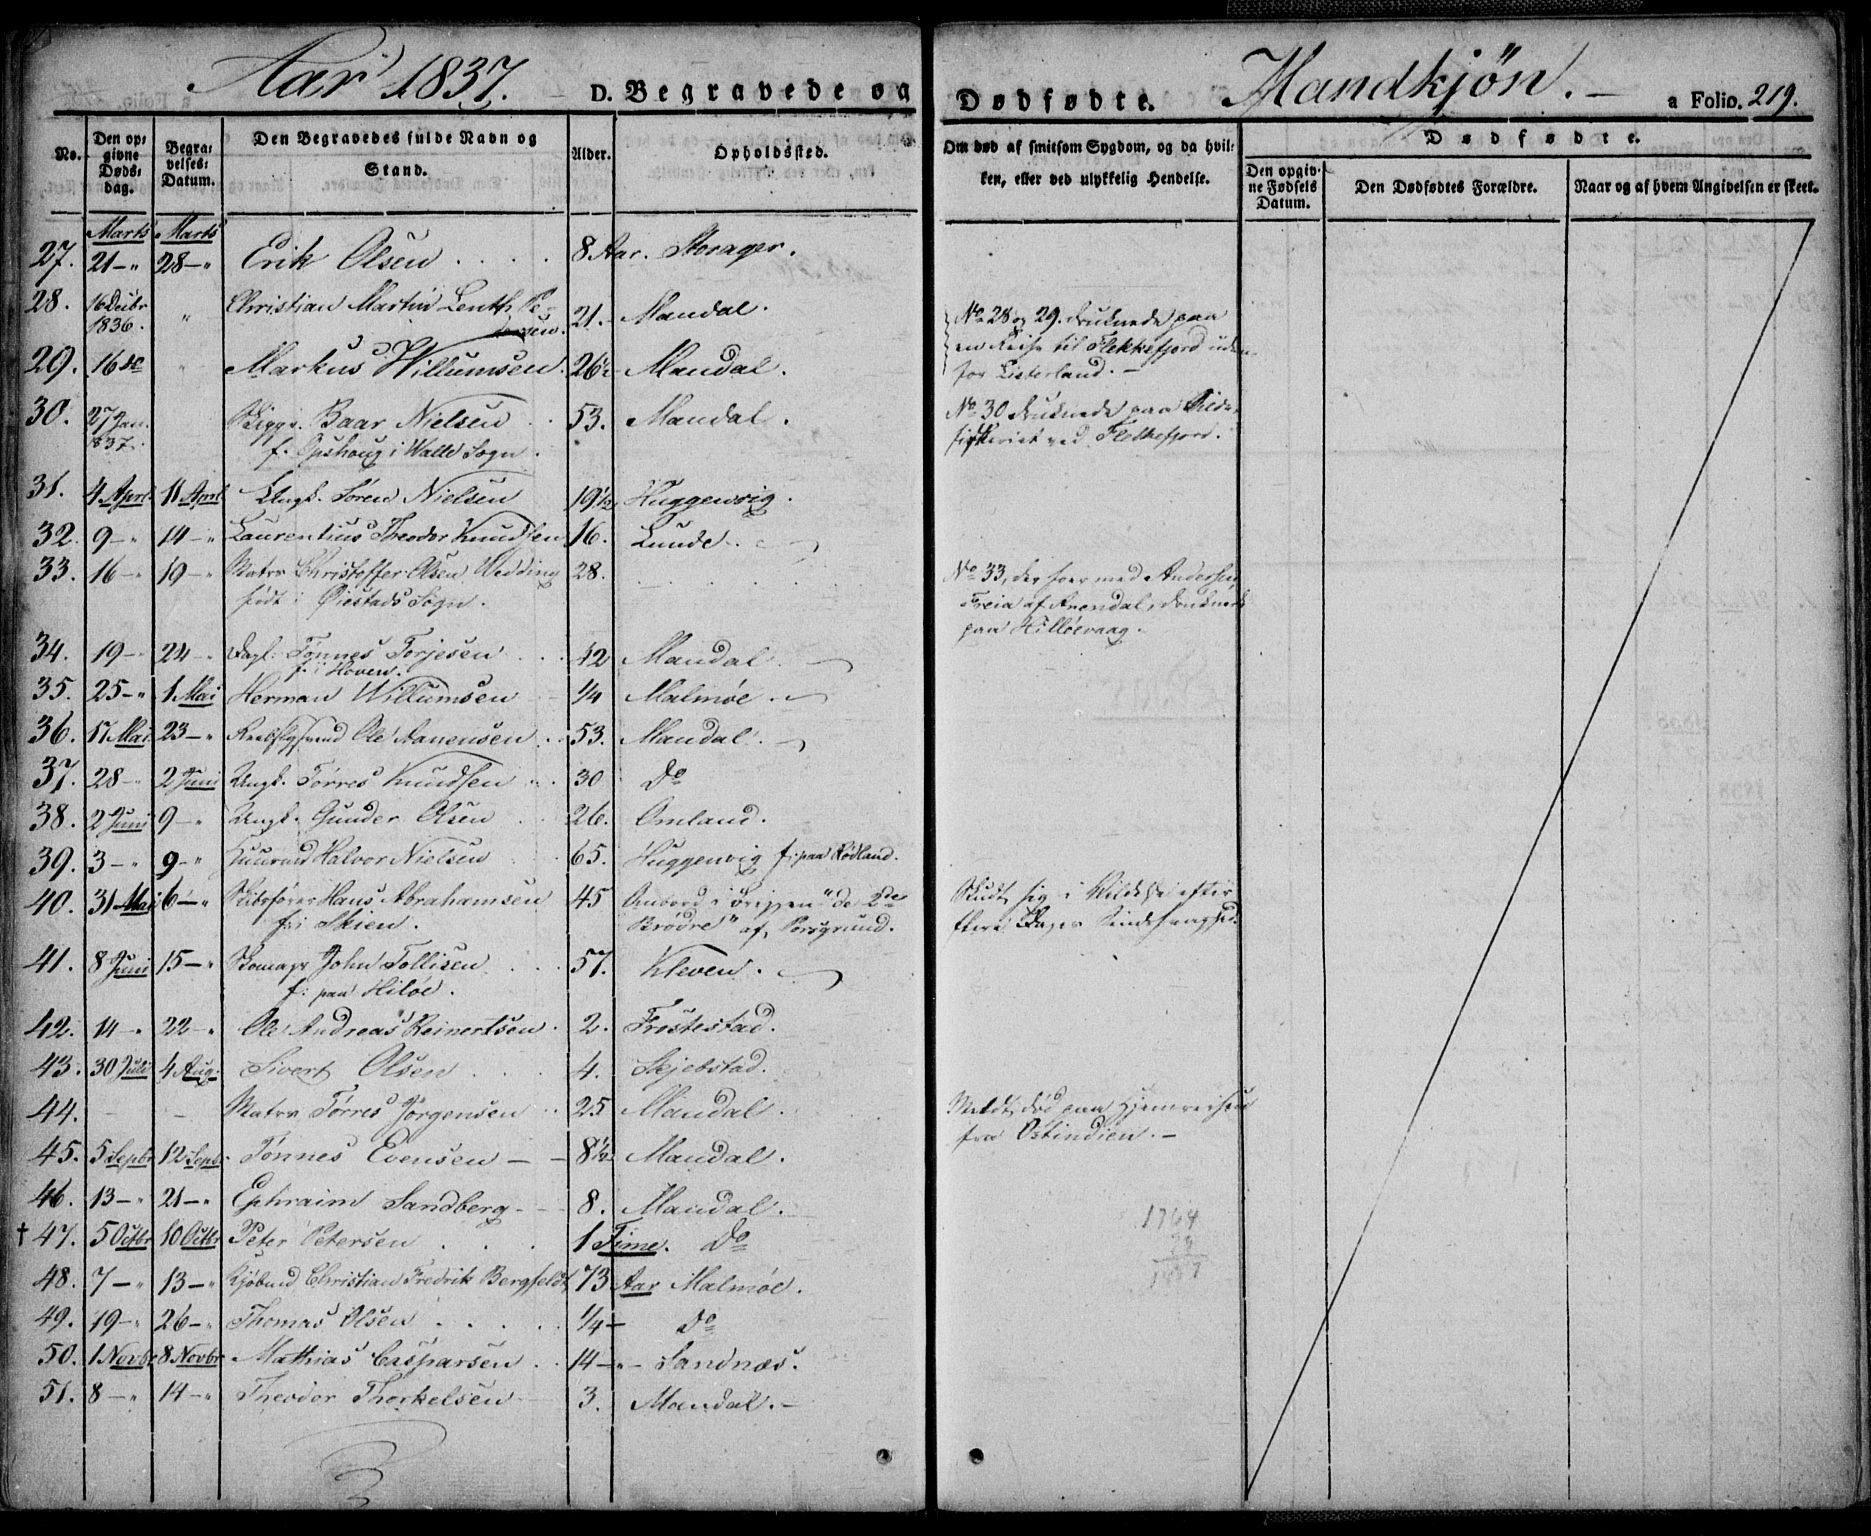 Aar 1837. D. Begravede og Dødfødte. Mandkjøn. — a Folio. 219.
No. Den opgivne Dødsdag. Begravelses-Datum. Den Begravedes fulde Navn og Stand. Alder. Opholdssted. Om død af smitsom Sygdom, og da hvilken, eller ved ulykkelig Hendelse. Dødfødte.
Den opgivne Fødsels Datum. Den Dødfødtes Forældre. Naar og af hvem Angivelsen er skeet.
Marts Marts
27. 21 — " 28 — " Erik Olsen 8 Aar. Storager.
28. 16 Decbr 1836. " Christian Martin Lenth Petersen. 21. Mandal. No 28 og 29. druknede paa
en Reise til Flekkefjord uden
for Listerland. —
29. 16 de " Markus Willumsen. 26½ Mandal.
30. 27 Jan. 1837. Skippr. Baar Nielsen 53. Mandal. No 30 druknede paa Silde-
fiskeriet ved Flekkefjord.
f. Opshoug i Halle Sogn.
31. 4 April 11 April Ungk. Søren Nielsen 19½ Huggenvig.
32. 9 — " 14 — " Laurentius Theodor Knudsen 16. Lunde.
33. 16 — " 19 — " Matrs Christoffer Olsen Wedding 28. No 33, der foer med
født i Øiestads Sogn. Freia af Arendal, druknede
paa Hilløevaag.
34. 19 — " 24 — " Dagl. Tønnes Torjesen 42 Mandal.
f. i Hoven.
35. 25 — " 1 Mai Herman Willumsen 1/4 Malmøe.
36. 17 Mai 23 — " Ole Aanensen 53. Mandal.
37. 28 — 2 Juni Ungk. Tørres Knudsen 30 Do
38. 2 Juni 9 — " Ungk. Gunder Olsen 26. Omland.
39. 3 — " 9 — " Halvor Nielsen 65. Huggenvig f: paa Rødland.
40. 31 Mai 6 — " Skibsfører Hans Abrahamsen 45 Ombord i Briggen "de 2de Skudt sig i Vildelse efter
f: i Skien. Brødre" af Porsgrund. flere Dages Sindssvaghed.
41. 8 Juni 15 — " Skomagr John Tollisen 57. Kleven.
f: paa Hiløe.
42. 14 — " 22 — " Ole Andreas Reinertsen. 2. Frøstestad.
43. 30 Juli 4 Aug. Sivert Olsen 4. Skjebstad.
44. — — Matrs Tørres Jørgensen 25 Mandal. Meldt død paa Hjemreisen
fra Ostindien. —
45. 5 Sepbr 12 Sepbr. Tønnes Evensen — — 8½ Mandal.
46. 13 — " 21 — " Ephraim Sandberg — 8. Mandal.
† 47. 5 Octbr 10 Octbr Peter Petersen 1 Time. Do
1764
48. 7 — " 13 — " Kjøbmd Christian Fredrik Bergfeldt 73 Aar Malmøe.
49. 19 — " 26 — " Thomas Olsen 1/4 — Do
50. 1 Novbr 8 Novbr Mathias Casparsen 14 — " — Sandnæs.
51. 8 — " 14 — " Theodor Thorkelsen 3. Mandal. —